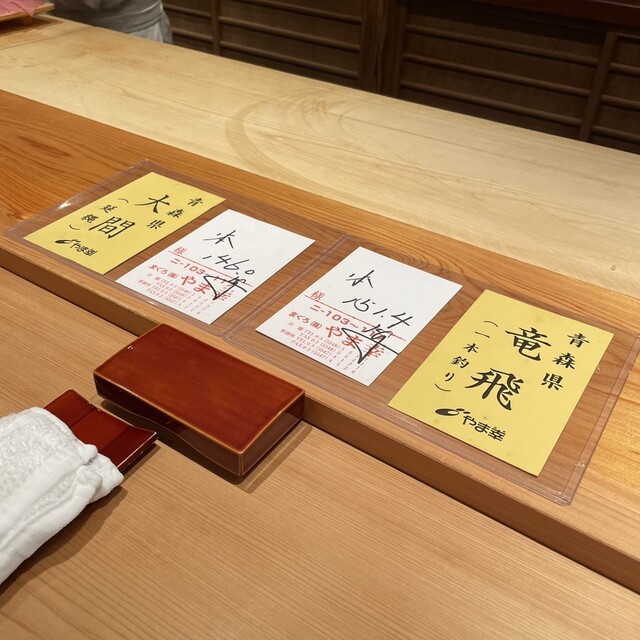 青森県
大間
(延縄)
やま幸
本
146.0
様
ニ-103~
まぐろ(商)やま幸
本
151.4
様
ニ-103~
まぐろ(商)やま幸
青森県
竜飛
(一本釣り)
やま幸